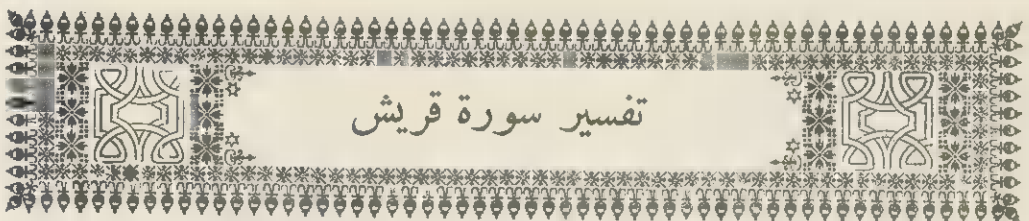 تفسير سورة قريش